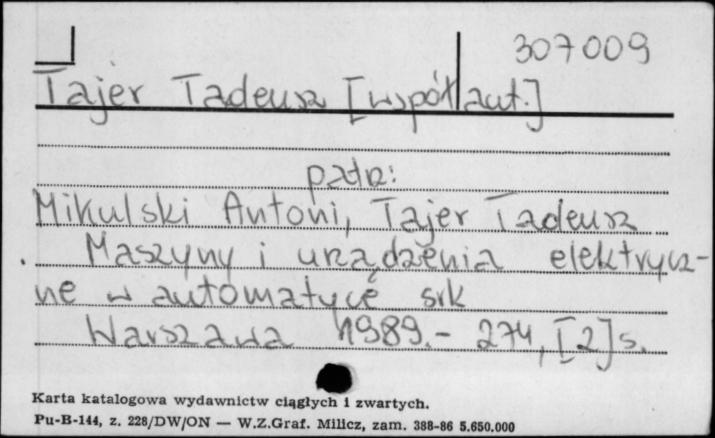 307009
Tajer Tadeusz [współaut.]
patrz:
Mikulski Antoni, Tajer Tadeusz
Maszyny i urządzenia elektrycz-
ne w automatyce srk
Warszawa 1989.- 274, [2] s.
Karta katalogowa wydawnictw ciągłych i zwartych.
Pu-B-144, z. 228/DW/ON — W.Z.Graf. Milicz, zam. 388-86 5.650.000